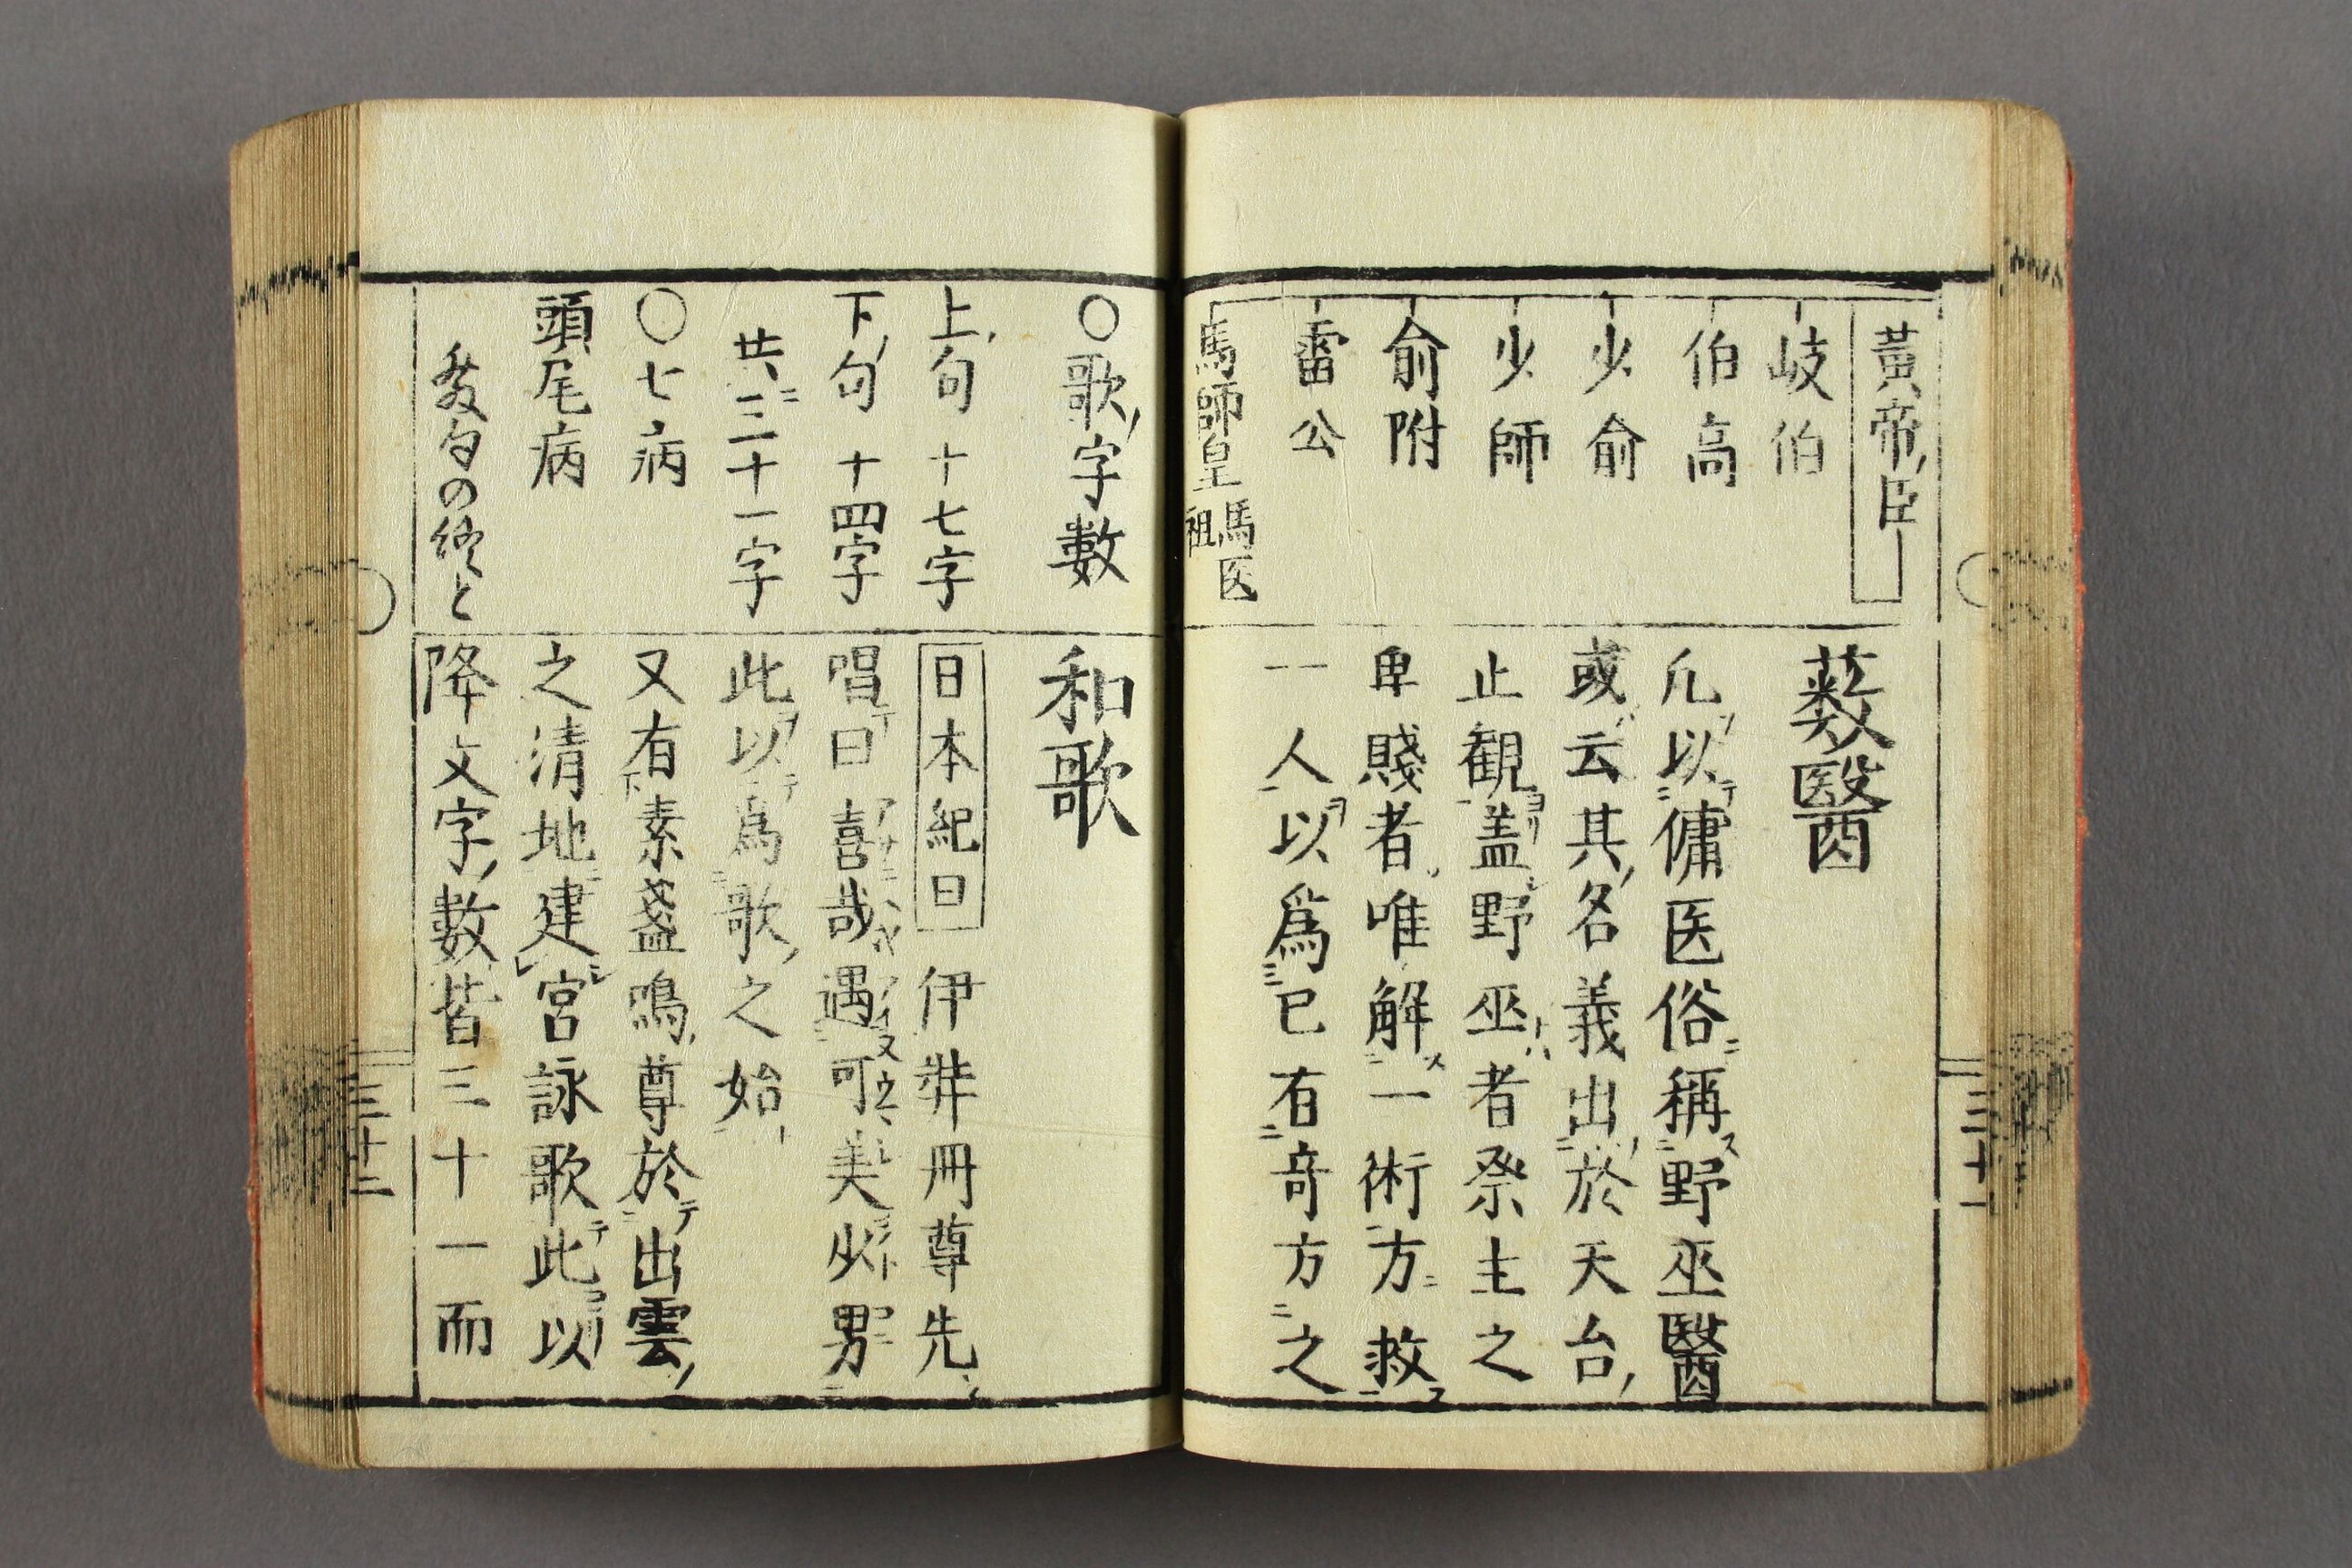 黃帝ノ臣
岐伯
伯高
少俞
少師
俞附
雷公
馬師皇 馬医祖
薮醫
凢以傭医俗稱野巫醫
或云其ノ名義出於天台ノ
止観盖野巫者祭主之
卑賤者唯解一術方救
一人以爲已有竒方之
〇歌ノ字數
上ノ句 十七字
下ノ句 十四字
共ニ三十一字
〇七病
頭尾病
發句の終と
和歌
日本紀曰 伊弉冊尊先
唱曰喜哉遇可美少男
此以爲歌ノ之始
又有素盞嗚尊於出雲ノ
之清地建宮詠歌此以
降文字ノ數皆三十一而
三十一
三十二